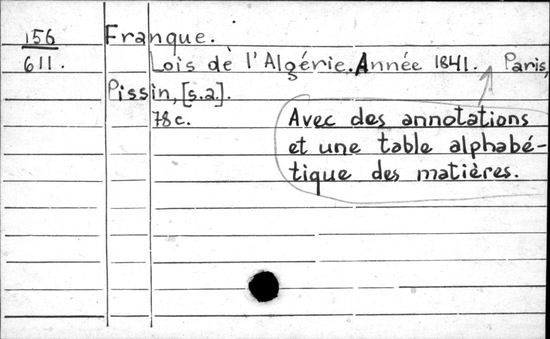 156 Franque.
611. Lois de l'Algérie. Année 1841. Paris,
Pissin, [s.a.].
78c.
Avec des annotations
et une table alphabé-
tique des matières.